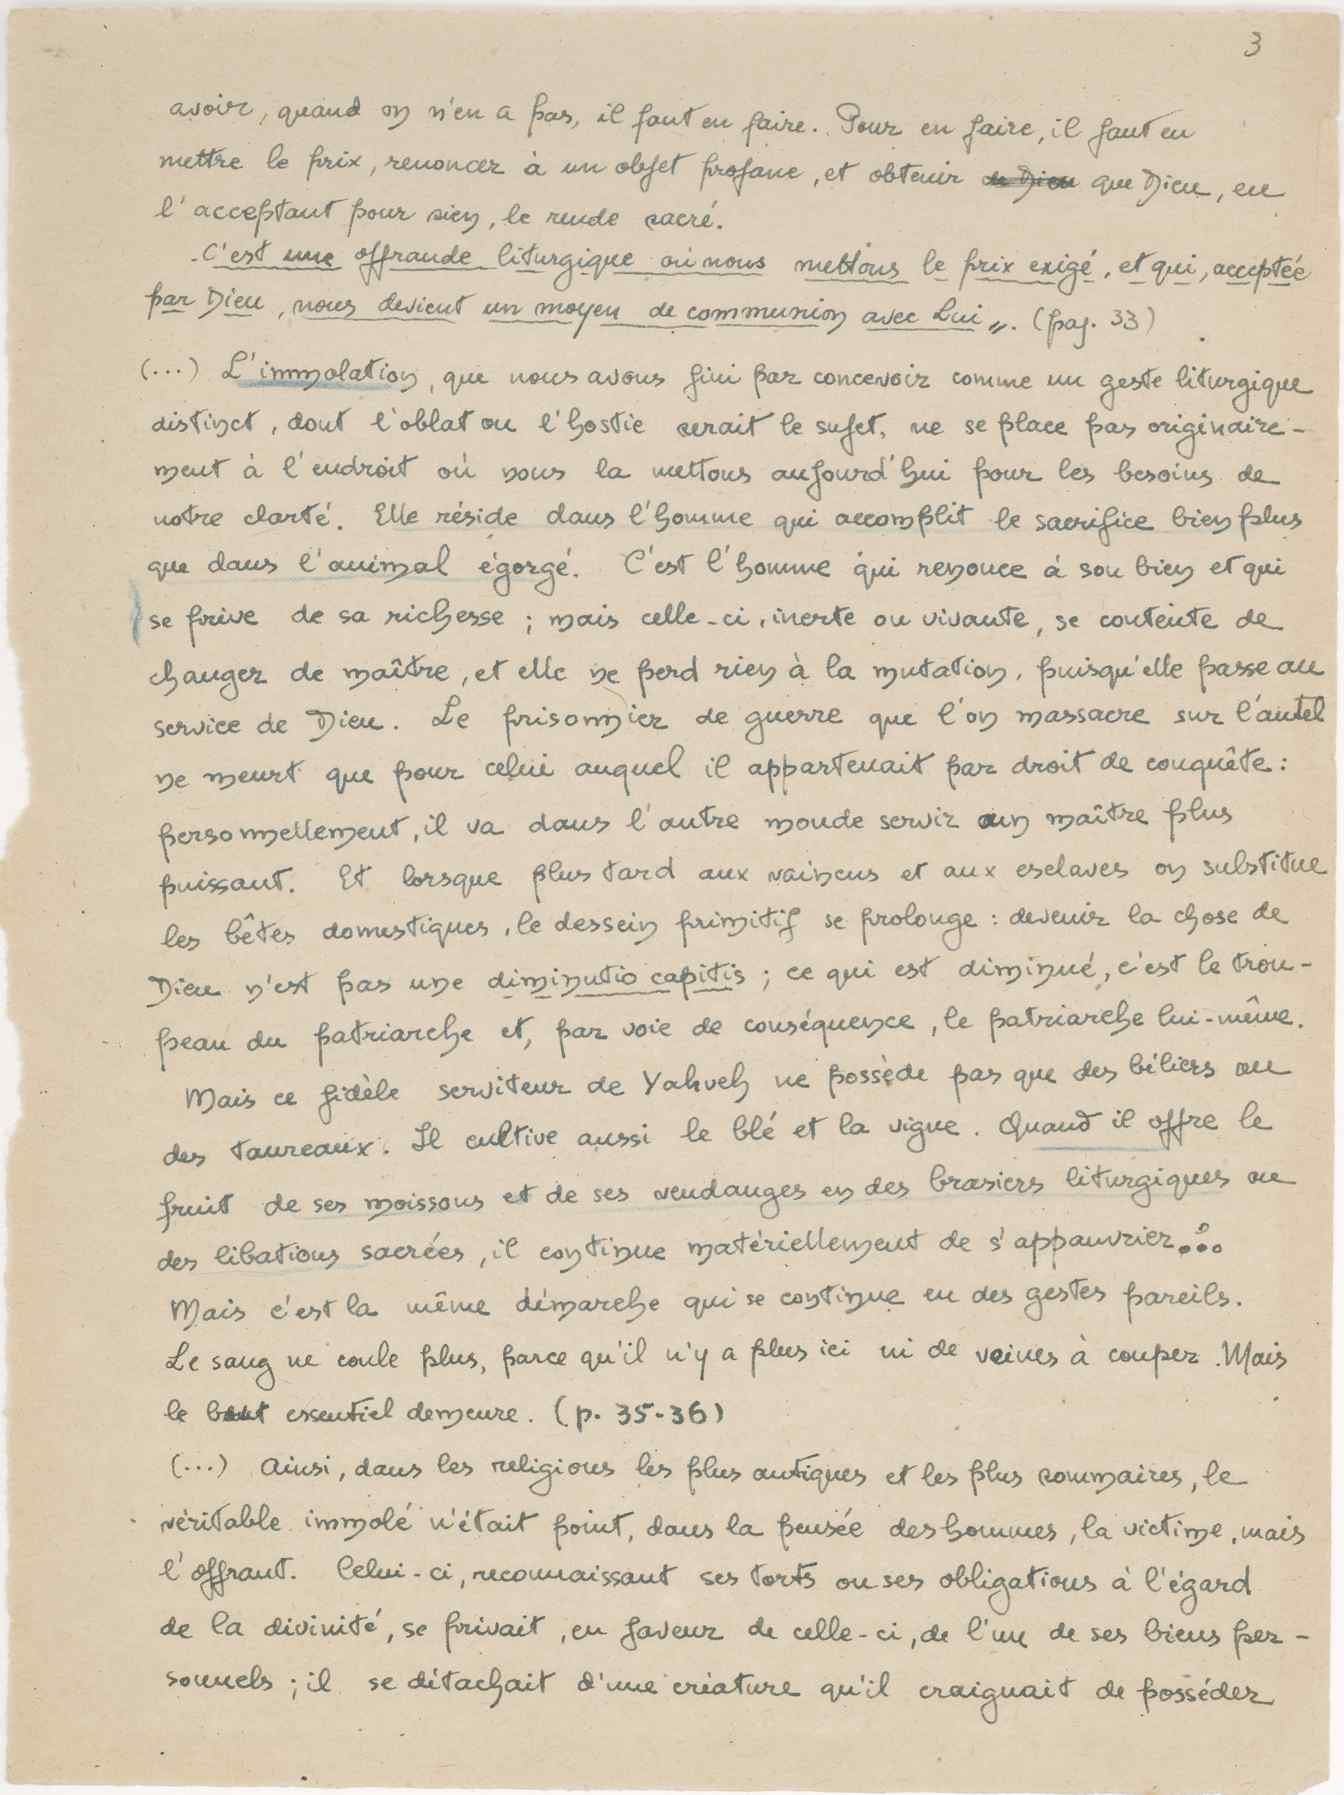 3
avoir, quand on n'en a pas, il faut en faire. Pour en faire, il faut en
mettre le prix, renoncer à un objet profane, et obtenir de Dieu que Dieu, en
l'acceptant pour sien, le rende sacré.
C'est une offrande liturgique où nous mettons le prix exigé, et qui, acceptée
par Dieu, nous devient un moyen de communion avec Lui„. (pag. 33)
(...) L'immolation, que nous avons fini par concevoir comme un geste liturgique
distinct, dont l'oblat ou l'hostie serait le sujet, ne se place pas originaire-
ment à l'endroit où nous la mettons aujourd'hui pour les besoins de
notre clarté. Elle réside dans l'homme qui accomplit le sacrifice bien plus
que dans l'animal égorgé. C'est l'homme qui renonce à son bien et qui
se prive de sa richesse ; mais celle-ci, inerte ou vivante, se contente de
changer de maître, et elle ne perd rien à la mutation, puisqu'elle passe au
service de Dieu. Le prisonnier de guerre que l'on massacre sur l'autel
ne meurt que pour celui auquel il appartenait par droit de conquête :
personnellement, il va dans l'autre monde servir un maître plus
puissant. Et lorsque plus tard aux vaincus et aux esclaves on substitue
les bêtes domestiques, le dessein primitif se prolonge : devenir la chose de
Dieu n'est pas une diminutio capitis ; ce qui est diminué, c'est le trou-
peau du patriarche et, par voie de conséquence, le patriarche lui-même.
Mais ce fidèle serviteur de Yahveh ne possède pas que des béliers ou
des taureaux. Il cultive aussi le blé et la vigne. Quand il offre le
fruit de ses moissons et de ses vendanges en des brasiers liturgiques ou
des libations sacrées, il continue matériellement de s'appauvrir...
Mais c'est la même démarche qui se continue en des gestes pareils.
Le sang ne coule plus, parce qu'il n'y a plus ici ni de veines à couper. Mais
le but essentiel demeure. (p. 35-36)
(...) Ainsi, dans les religions les plus antiques et les plus sommaires, le
véritable immolé n'était point, dans la pensée des hommes, la victime, mais
l'offrant. Celui-ci, reconnaissant ses torts ou ses obligations à l'égard
de la divinité, se privait, en faveur de celle-ci, de l'un de ses biens per-
sonnels ; il se détachait d'une créature qu'il craignait de posséder